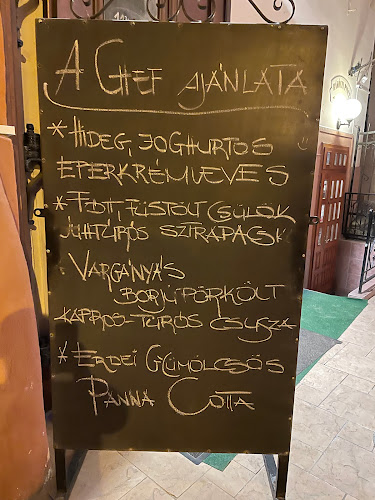 A CHEF AJÁNLATA
* HIDEG, JOGHURTOS
EPERKRÉMLEVES
* FŐTT, FÜSTÖLT CSÜLÖK
JUHTÚRÓS SZTRAPACSKA
VARGÁNYÁS
BORJÚPÖRKÖLT
KAPROS-TÚRÓS CSUSZA
* ERDEI GYÜMÖLCSÖS
PANNA COTTA